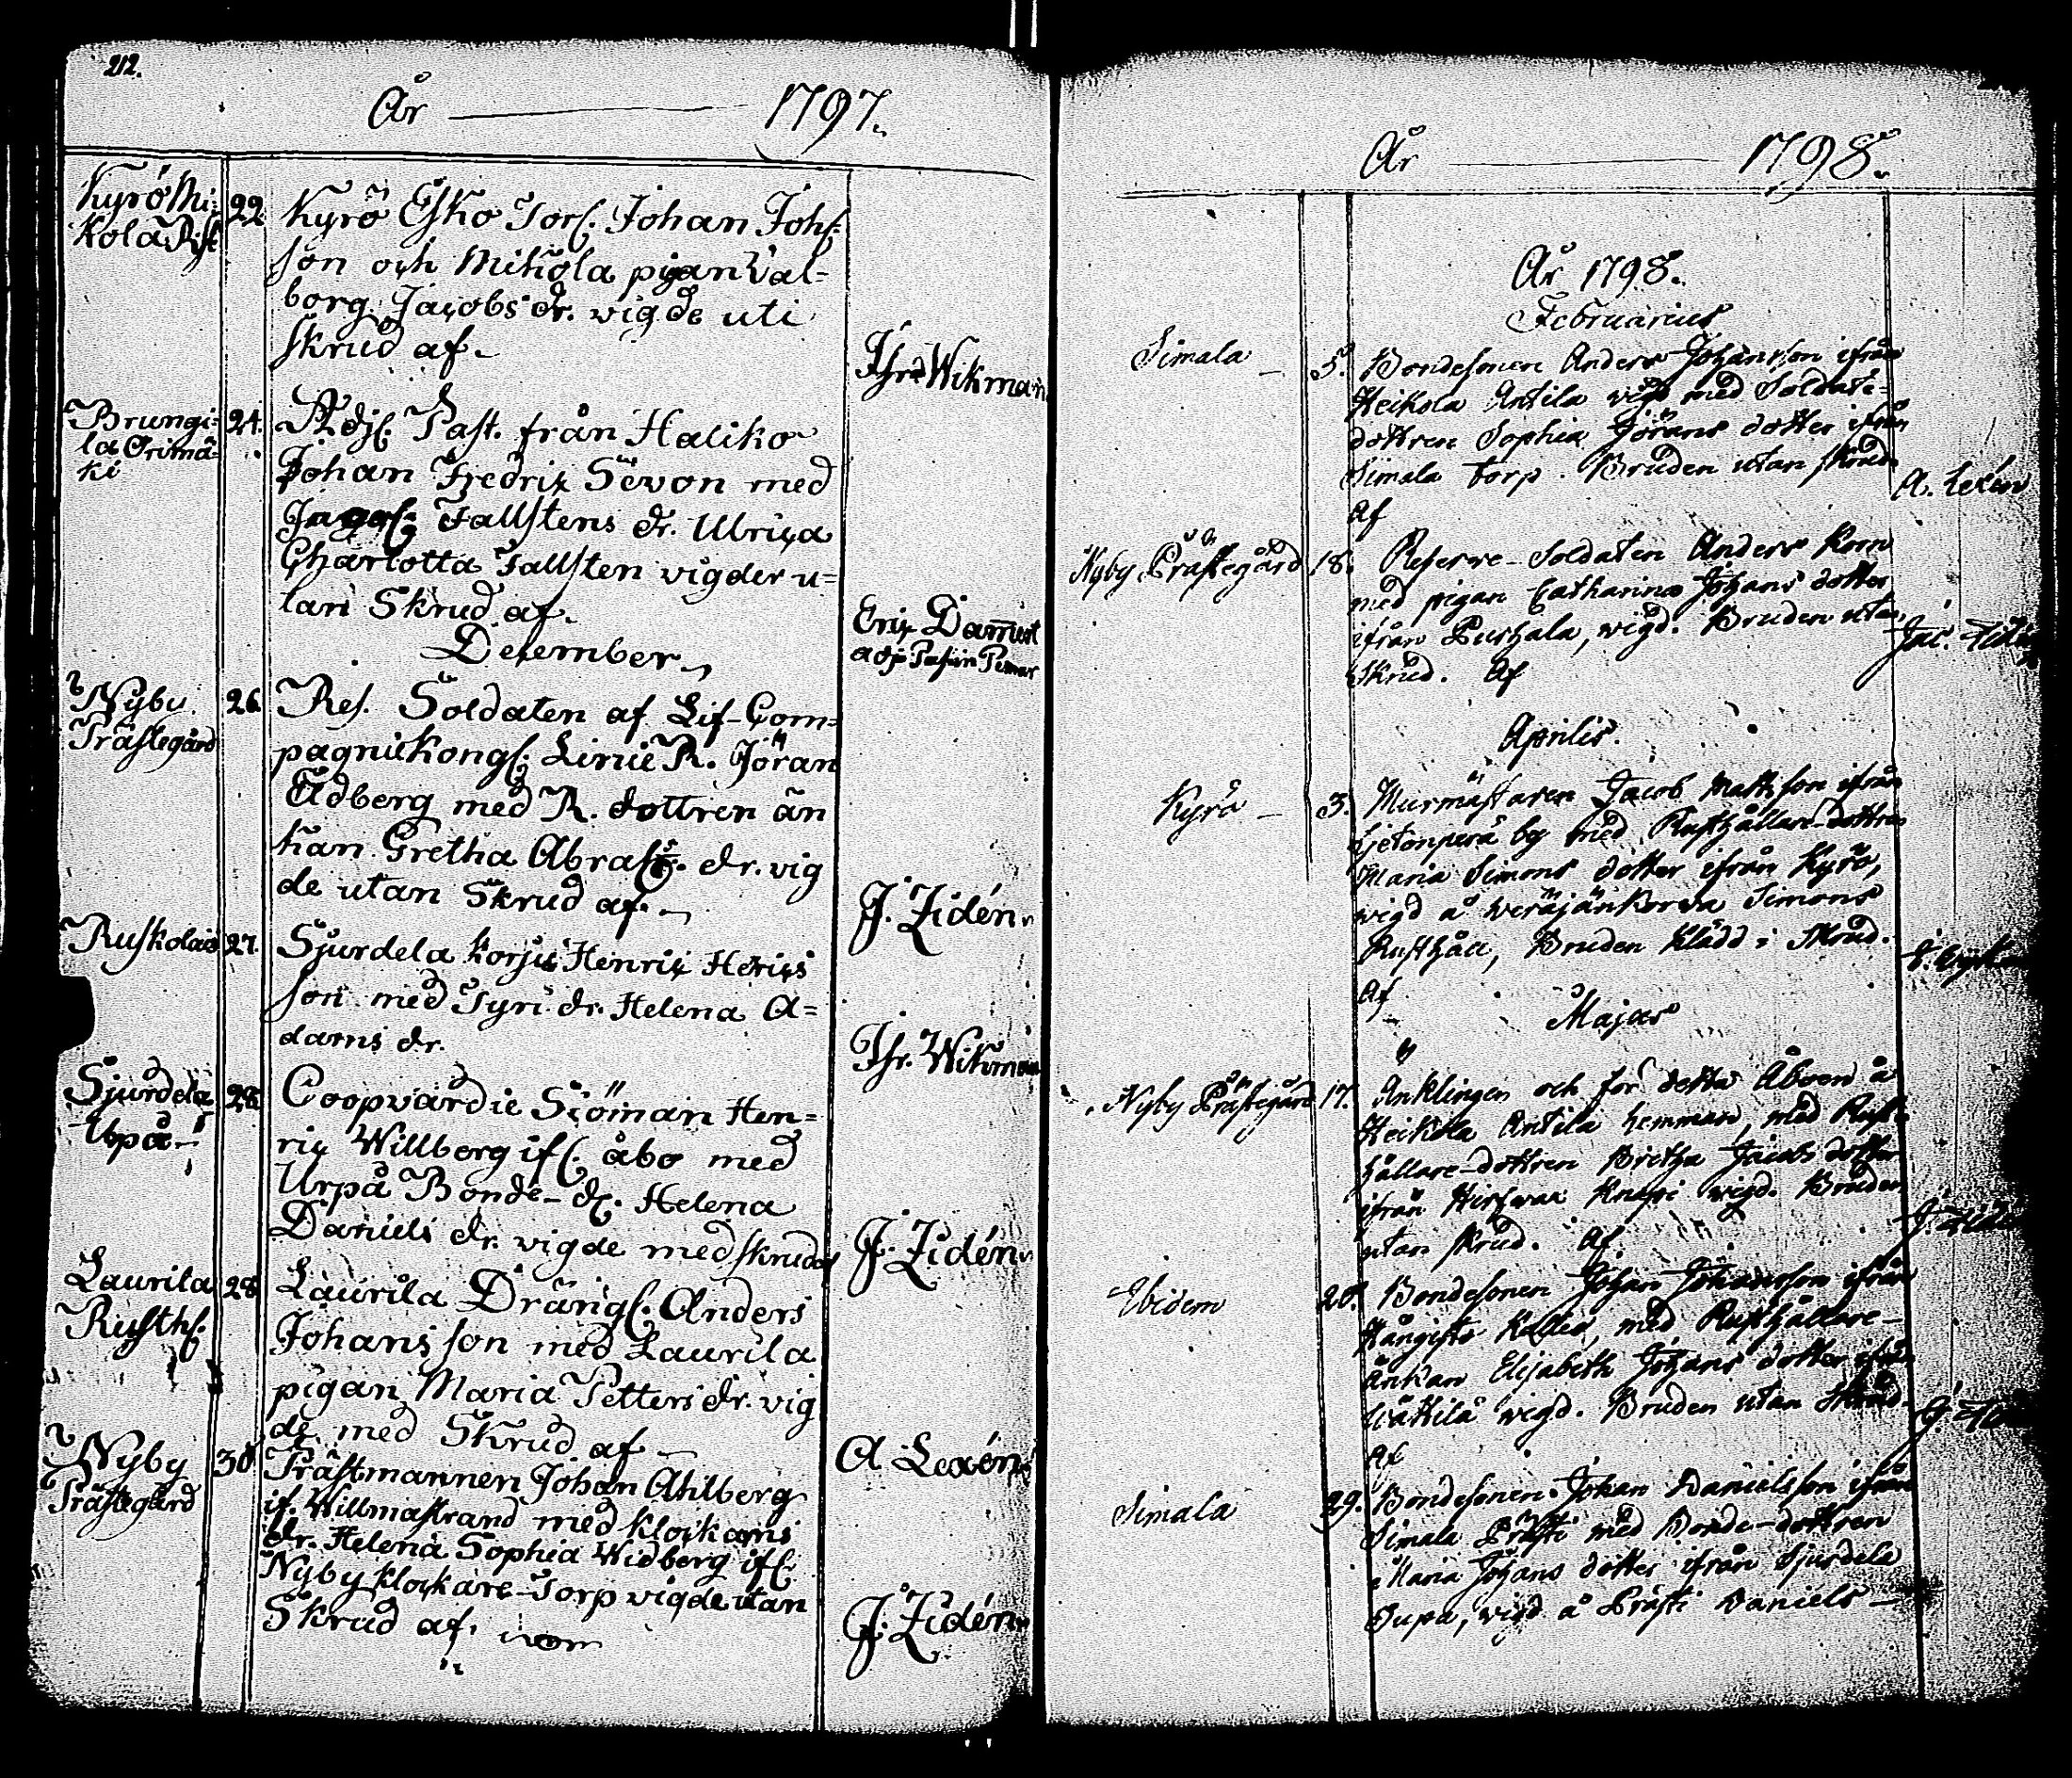 212.
År 1797.
Kyrö Mi=
kola Rist
22
Kyrö Esko Tors. Johan Johs=
son och Mikola pigan Val=
borg Jacobs dr. vigde uti
skrud af.
Thr. Wikman
Brungi=
la Orimä=
ki
24.
Adj. Past. från Haliko
Johan Fredric Sevon med
Fallstens dr. Ulrica
Charlotta Fallsten vigder u=
tan Skrud af.
Eric Damert
adj. Past. in Pemar
December
Nyby
Prästegård
26.
Res. Soldaten af Lif-Com=
pagnie Kongs. Linie R. Jöran
Ädberg med R. dottren än
kan Gretha Abras. dr. vig
de utan Skrud af.
J. Zidén.
Ruskola
27.
Sjurdela Korsu Henric Herics
son med Tyri dr. Helena A=
dams dr.
Thr. Wikman
Sjurdela
Upå
28
Coopvärdie Siöman Hen=
ric Willberg ifs. åbo med
Urpå Bonde-dr. Helena
Daniels dr. vigde med skrud af
J. Zidén.
Laurila
Rusth.
28
Laurila Drängs. Anders
Johans son med Laurila
pigan Maria Petters dr. vig
de med Skrud af
A. Lexén.
Nyby
Prästegård
30
Prästmannen Johan Ahlberg
if. Willmastrand med klockans
dr. Helena Sophia Widberg ifs.
Nyby klockare-Torp vigde utan
Skrud af.
J. Zidén.
År 1798.
År 1798.
Februarius
Simala
5.
Bondesonen Anders Johansson ifrån
Heikola Antila vigd med Soldate-
dottren Sophia Jörans dotter ifrån
Simala torp. Bruden utan skrud
Af
A. Lexén
Nyby Prästegård
18.
Reserve-Soldaten Anders Korn
med pigan Catharina Johans dotter
ifrån Purhala, wigd. Bruden utan
Skrud. Af
Jac.
Aprilis.
Kyrö
3.
Murmästaren Jacob Mattsson ifrån
by med Rusthållare-dottren
Maria Simons dotter ifrån Kyrö,
wigd å Simons
Rusthåll, Bruden klädd i Skrud.
Af
Majus
Nyby Prästegård
17.
Änklingen och för detta Åboen å
Heikola Antila hemman, med Rust-
hållare-dottren Britha Jacobs dotter
ifrån Hirswax Knapi wigd. Bruden
utan skrud. Af
J. Zidén
Ibidem
20.
Bondesonen Johan Johansson ifrån
Hångisto med Rusthållare-
änkan Elisabeth Johans dotter ifrån
Wättilä wigd. Bruden utan Skrud.
Af
29.
Simala
Bondesonen Johan Danielsson ifrån
Simala Prästi med Bonde-dottren
Maria Johans dotter ifrån Sjurdela
Supa, wigd å Prästi Daniels-